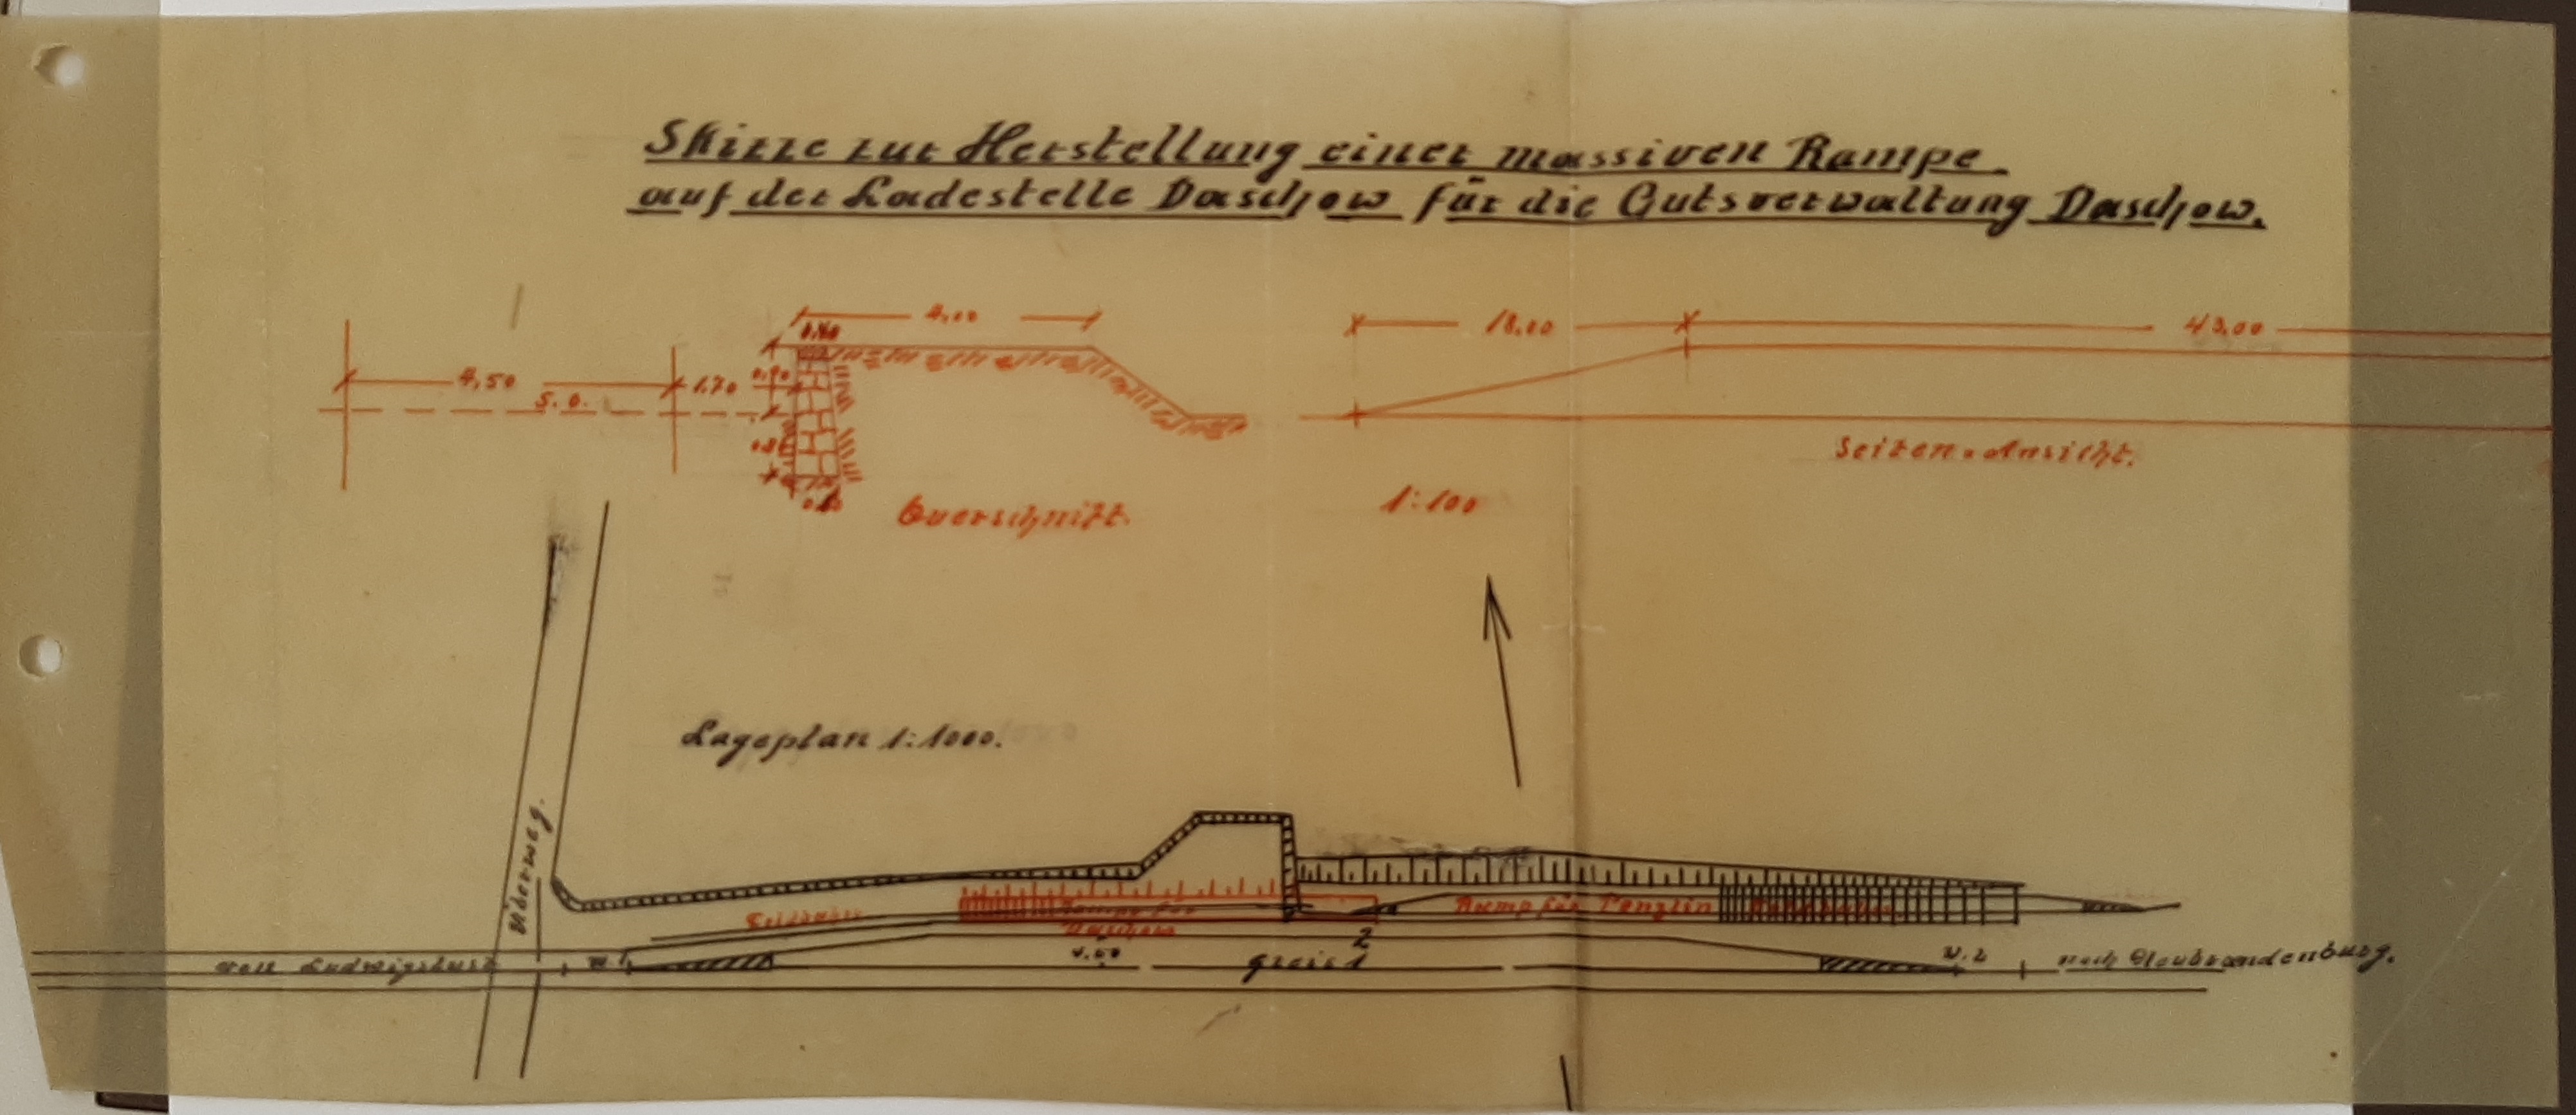 Skizze zur Herstellung einer massiven Rampe
auf der Ladestelle Daschow für die Gutsverwaltung Daschow.
4,00
18,00
43,00
0,40
4,50
1,70
0,90
S. O.
Seiten-Ansicht.
Querschnitt.
1:100
Lageplan 1:1000.
Überweg.
Feldbahn
Rampe für
Daschow
Ramp für Penzlin
2
4,50
Gleis 1
von Ludwigslust
W. 1
W. 2
nach Neubrandenburg.